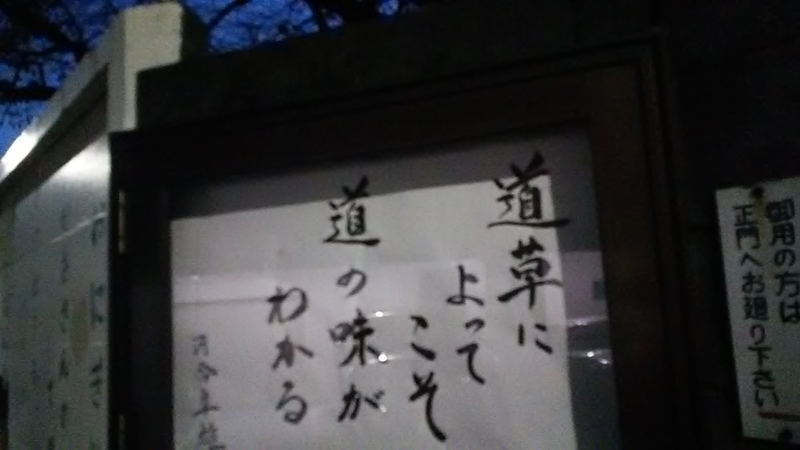 御用の方は
正門へお廻り下さい
道草に
よって
こそ
道の味が
わかる
河合隼雄